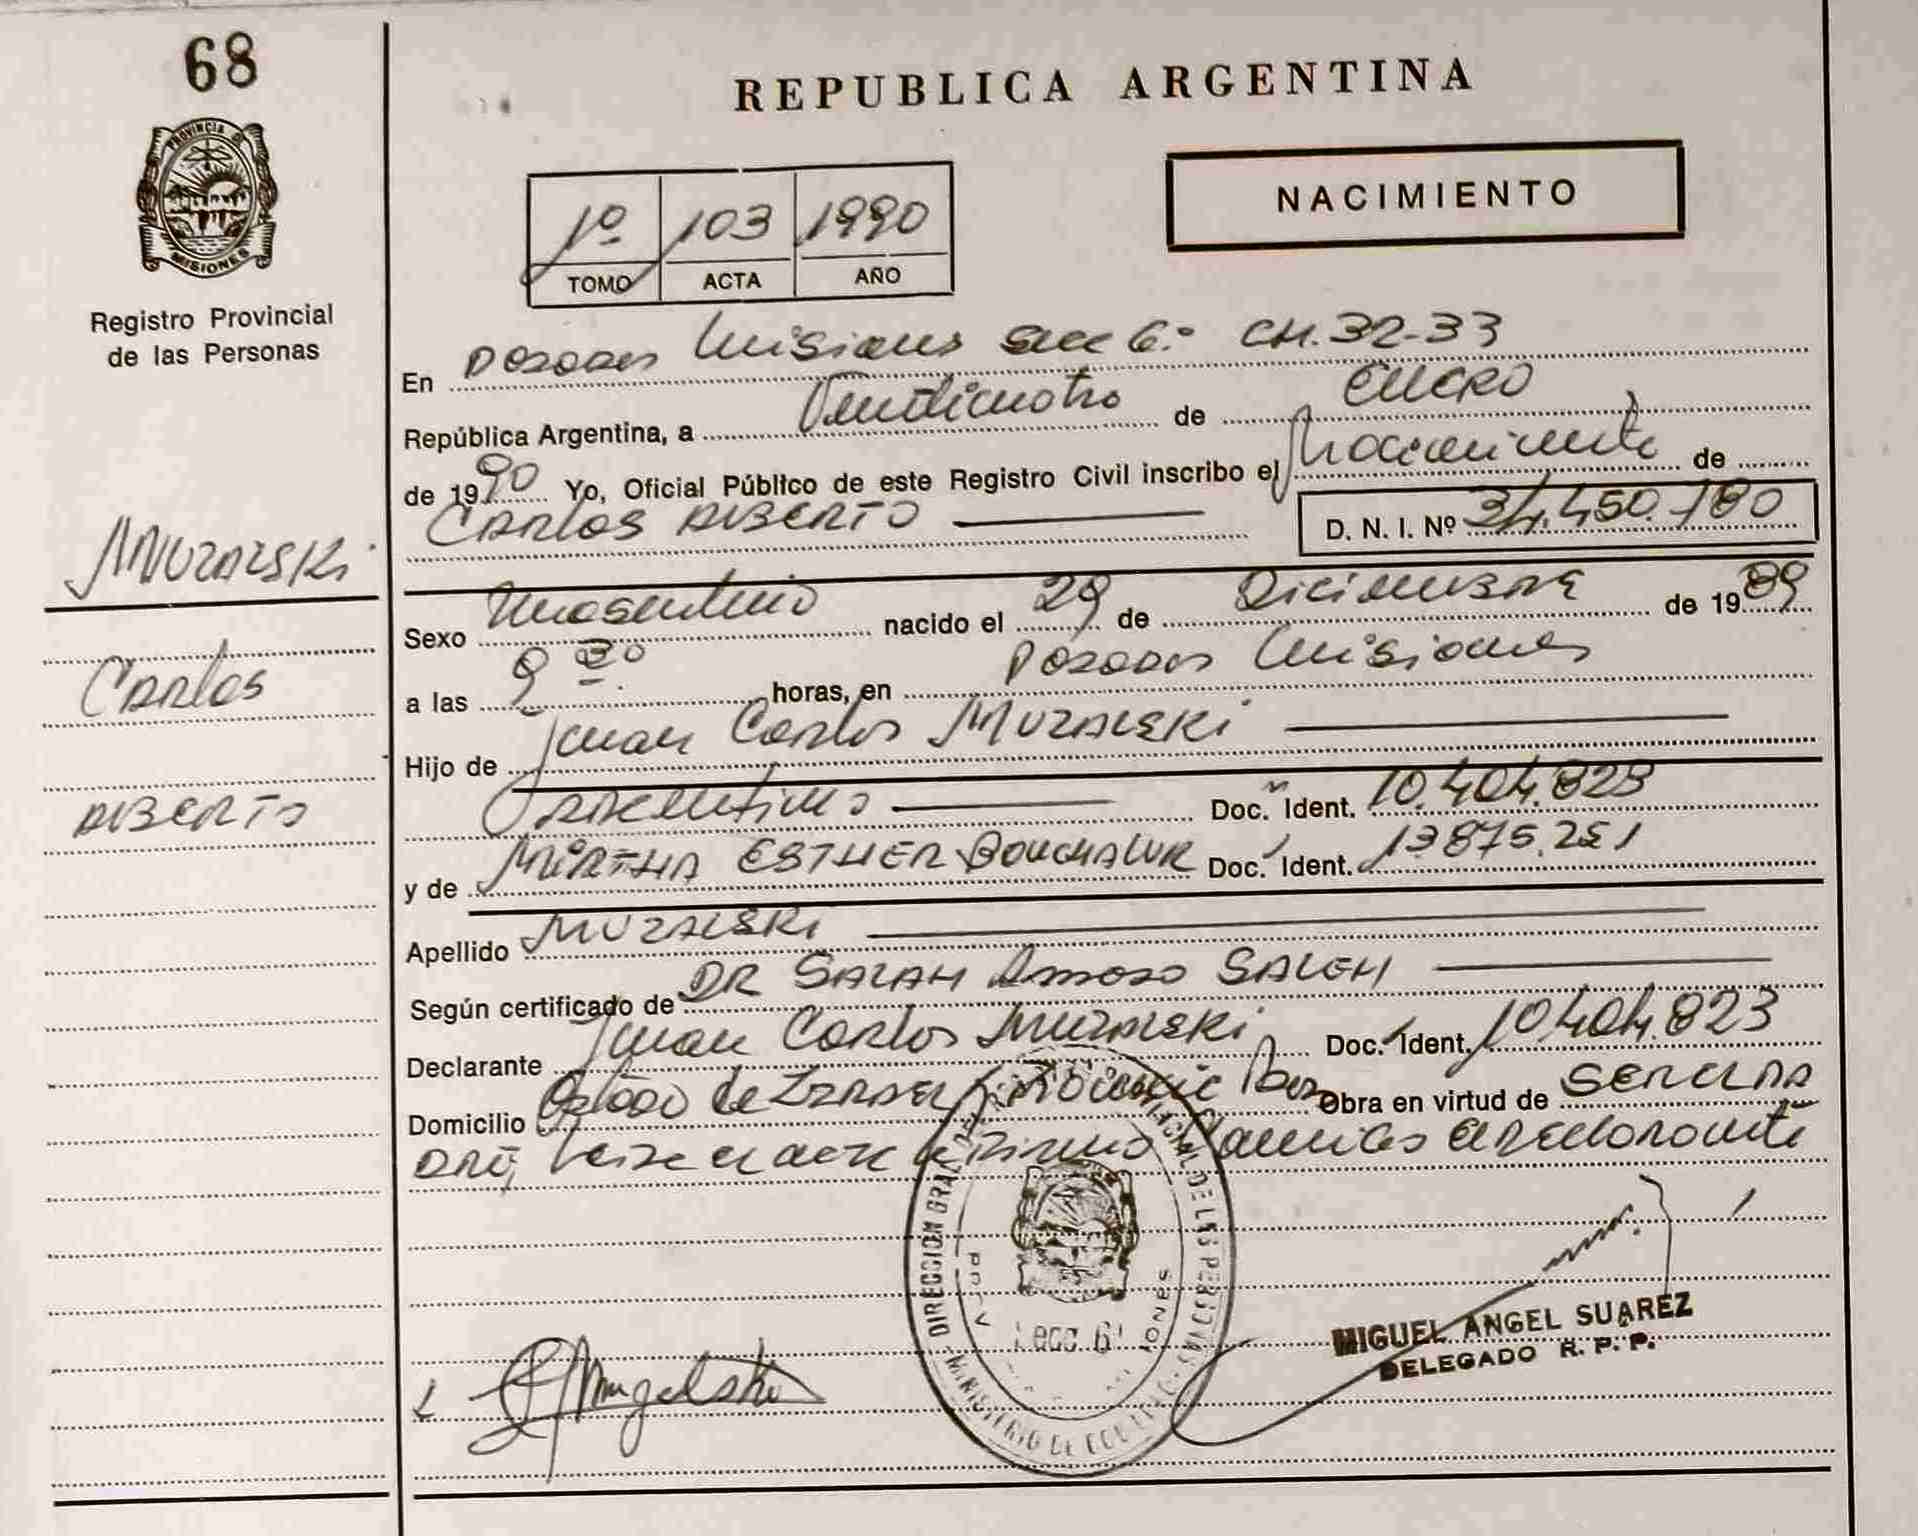 68
REPUBLICA ARGENTINA
PROVINCIA DE
MISIONES
Registro Provincial
de las Personas
NACIMIENTO
1º 103 1990
TOMO ACTA AÑO
En Posadas Misiones Secc 6.º CH. 32-33
República Argentina, a Veinticuatro de ENERO
de 1990 Yo, Oficial Público de este Registro Civil inscribo el Nacimiento de
CARLOS ALBERTO D. N. I. Nº 34.450.180
MUZALSKI
Carlos
ALBERTO
Sexo Masculino nacido el 29 de Diciembre de 1989
a las 9 30 horas, en Posadas Misiones
Hijo de Juan Carlos MUZALSKI
ARGENTINO Doc. Ident. 10.404.823
y de MIRTHA ESTHER Doc. Ident. 13.875.251
Apellido MUZALSKI
Según certificado de DR SALAH SALEH
Declarante Juan Carlos MUZALSKI Doc. Ident. 10.404.823
Domicilio Estado de ISRAEL Obra en virtud de SER EL PA
DRE, Leída el acta Firma conmigo el declarante
DIRECCION GRAL
MIGUEL ANGEL SUAREZ
DELEGADO R. P. P.